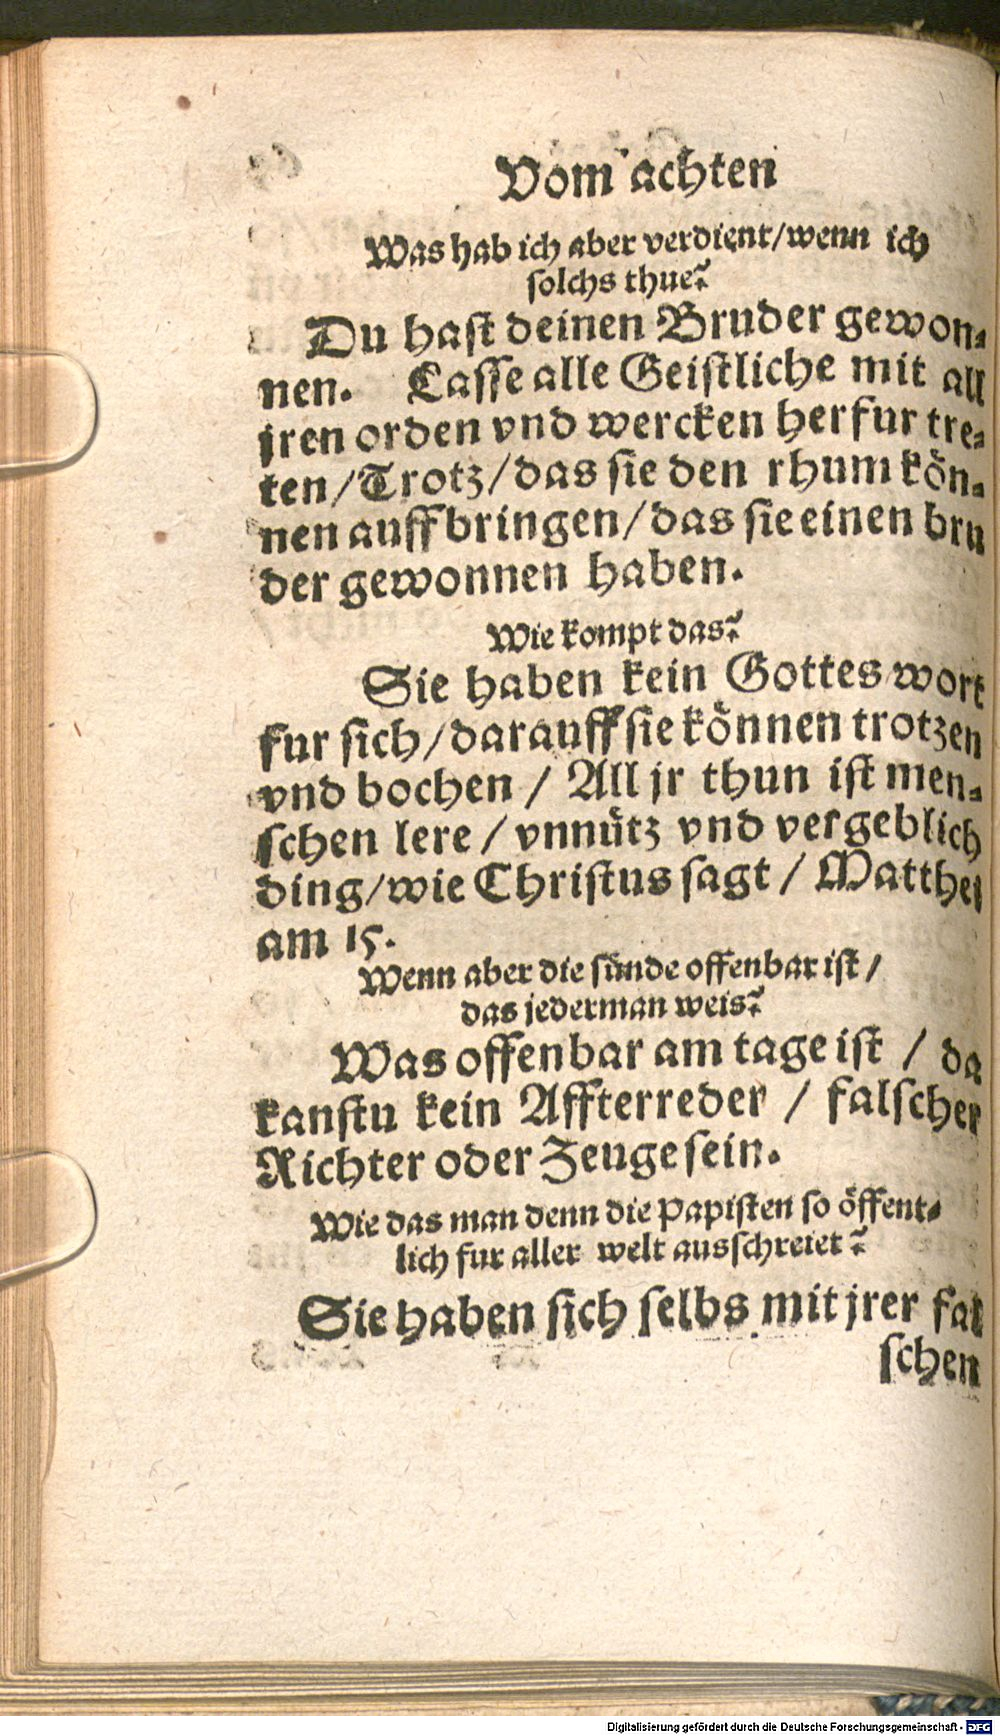 Vom achten
Was hab ich aber verdient/wenn ich
solchs thue?
Du hast deinen Bruder gewon⸗
nen. Lasse alle Geistliche mit all
jren orden vnd wercken herfur tre⸗
ten/Trotz/das sie den rhum kön⸗
nen auffbringen/das sie einen bru
der gewonnen haben.
Wie kompt das?
Sie haben kein Gottes wort
fur sich/darauff sie können trotzen
vnd bochen / All jr thun ist men⸗
schen lere / vnnütz vnd vergeblich
ding/wie Christus sagt / Matthei
am 15.
Wenn aber die sünde offenbar ist /
das jederman weis?
Was offenbar am tage ist / da
kanstu kein Affterreder / falscher
Richter oder Zeuge sein.
Wie das man denn die Papisten so öffent⸗
lich fur aller welt ausschreiet?
Sie haben sich selbs mit jrer fal
schen
Digitalisierung gefördert durch die Deutsche Forschungsgemeinschaft - DFG